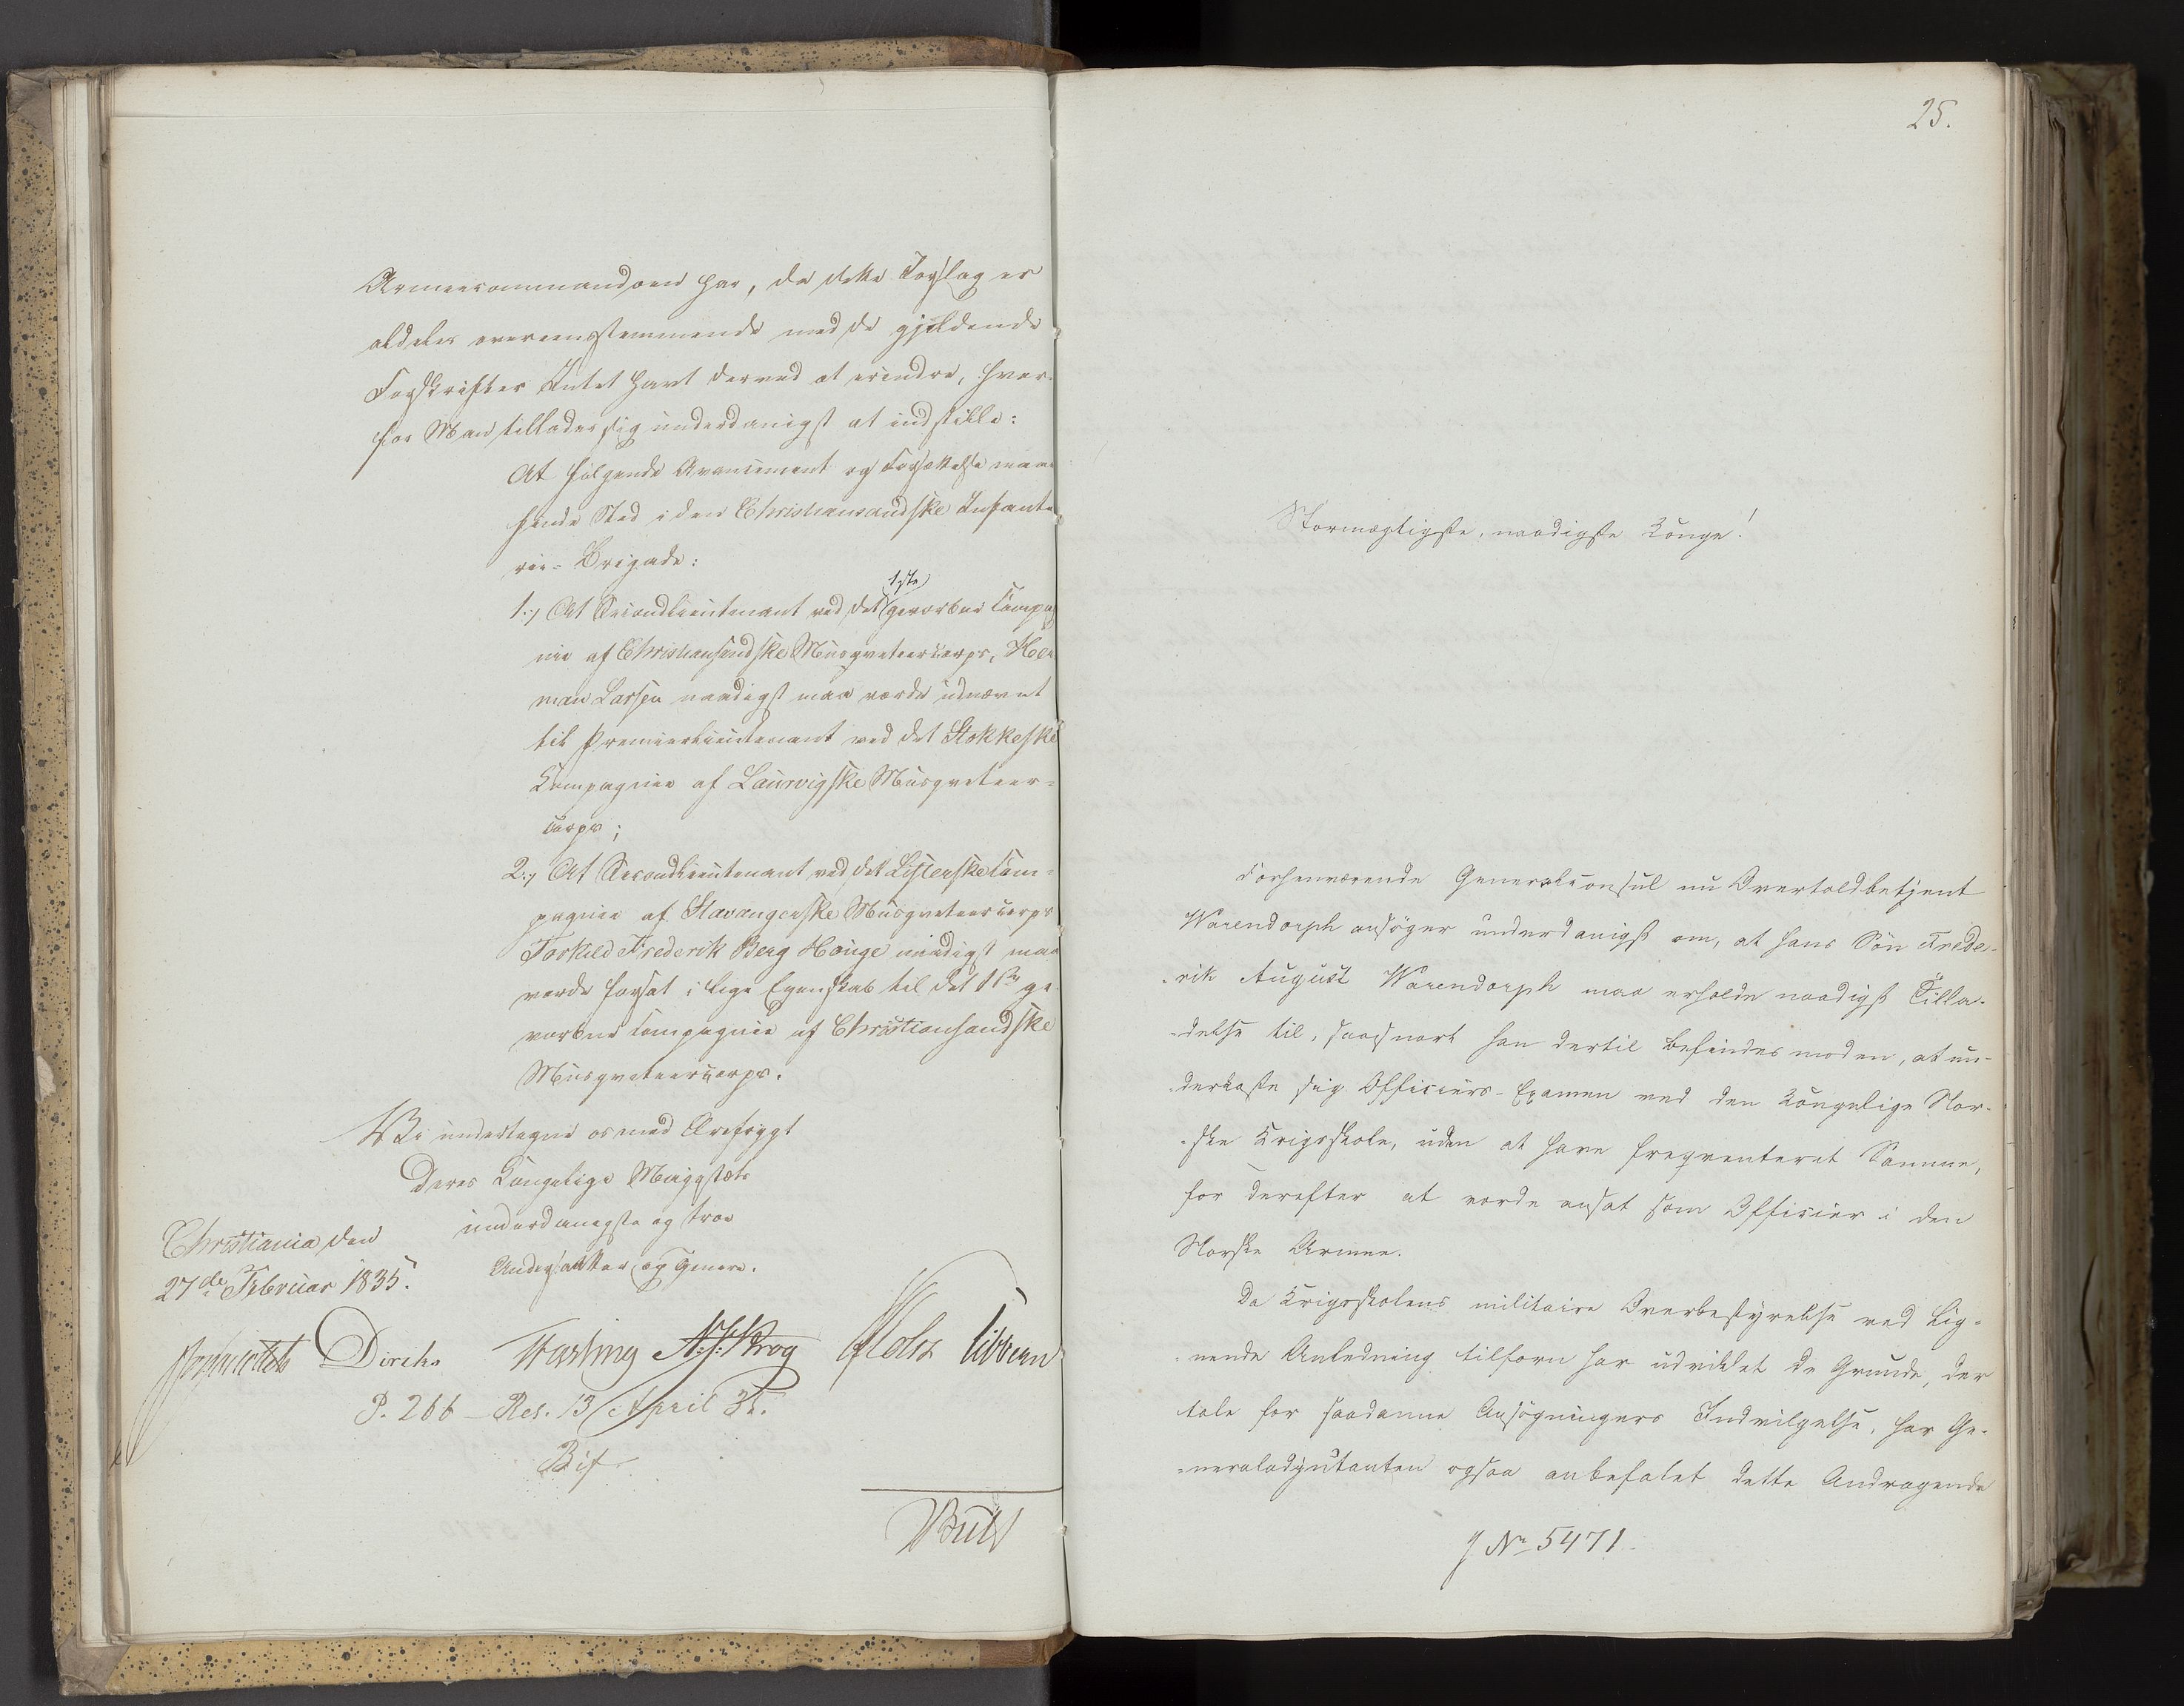 Armeecommandoen har, da dette Forslag er
aldeles overeensstemmende med de gjeldende
Forskrifter Intet havt derved at erindre, hvor-
for Man tillader sig underdanigst at indstille:
At følgende Avancement og Forsættelse maae
finde Sted i den Christiansandske Infante
rie-Brigade:
1:, At Secondlieutenant ved det 1ste gevorbne Compag
nie af Christiansandske Musqveteercorps, Her
man Larsen naadigst maa vorde udnævnt
til Premierlieutenant ved det Stokkeske
Compagnie af Laurvigske Musqveteer-
corps;
2:, At Secondlieutenant ved det Listerske Com-
pagnie af Stavangerske Musqveteercorps
Torkild Frederik Berg Houge naadigst maa
vorde forsat i lige Egenskab til det 1ste ge
vorbne Compagnie af Christiansandske
Musqveteercorps.
Vi undertegne os med Ærefrygt
Deres Kongelige Majestæts
underdanigste og troe
Undersaatter og Tjenere.
Christiania den
27de Februar 1835.
Diriks Fasting N. J. Krog Holst Vibe
P. 266 - Res. 13 April 35.
Bif.
25.
Stormægtigste, naadigste Konge!
Forhenværende Generalconsul nu Overtoldbetjent
Warendorph ansøger underdanigst om, at hans Søn Frede-
-rik August Warendorph maa erholde naadigst Tilla-
-delse til, saasnart han dertil befindes moden, at un-
-derkaste sig Officiers-Examen ved den Kongelige Nor-
-ske Krigsskole, uden at have freqventeret Samme,
for derefter at vorde ansat som Officier i den
Norske Armee.
Da Krigsskolens militaire Overbestyrelse ved Lig-
-nende Anledning tilforn har udviklet de Grunde, der
tale for saadanne Ansøgningers Indvilgelse, har Ge-
-neraladjutanten ogsaa anbefalet dette Andragende
J No 5471.